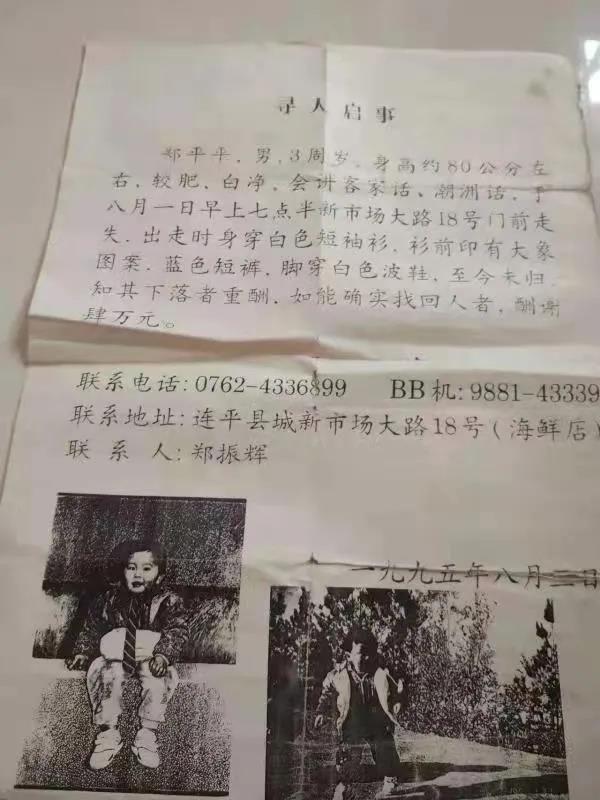 寻人启事
郑平平，男，3周岁，身高约80公分左
右，较肥、白净，会讲客家话、潮洲话，于
八月一日早上七点半新市场大路18号门前走
失，出走时身穿白色短袖衫，衫前印有大象
图案，蓝色短裤，脚穿白色波鞋，至今未归，
知其下落者重酬，如能确实找回人者，酬谢
肆万元。
联系电话：0762-4336899 BB机：9881-43339
联系地址：连平县城新市场大路18号（海鲜店）
联系人：郑振辉
一九九五年八月二日